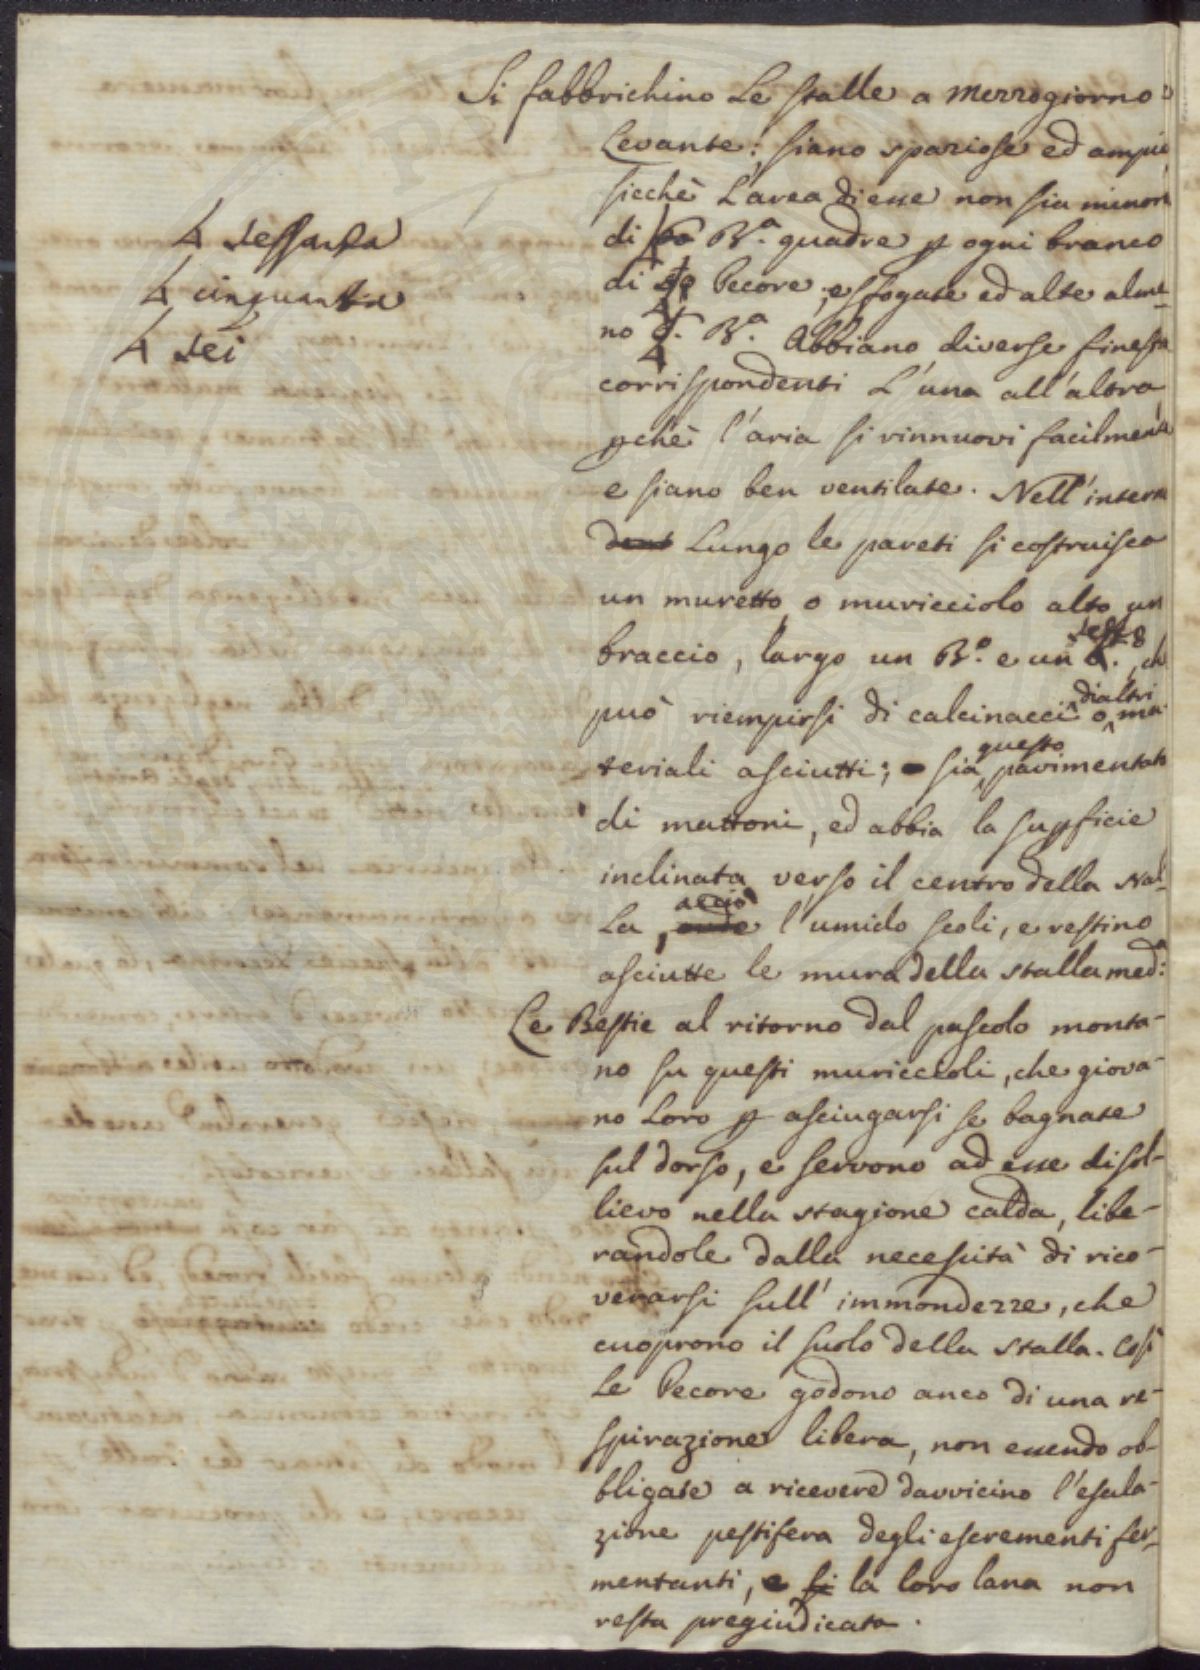 Si fabbrichino Le stalle a Mezzogiorno
Levante; siano spaziose ed ampie
sicchè L'area di esse non sia minore
4 sessanta
di 60 B.ª quadre p ogni branco
4 cinquanta
di 50 Pecore, e sfogate ed alte alme-
4 sei
no 6. B.ª Abbiano diverse finestre
corrispondenti L'una all'altra
pchè l'aria si rinnuovi facilmente
e siano ben ventilate. Nell'interno
dent Lungo le pareti si costruisca
un muretto o muricciolo alto un
braccio, largo un B.º e un
può riempirsi di calcinacci o di altri ma-
teriali asciutti; sia questo pavimentato
di mattoni, ed abbia la supficie
inclinata verso il centro della stal-
La, onde acciò l'umido scoli, e restino
asciutte le mura della stalla med:ª
Le Bestie al ritorno dal pascolo monta-
no su questi muriccioli, che giova-
no Loro p asciugarsi se bagnate
sul dorso, e servono ad esse di sol-
lievo nella stagione calda, libe-
randole dalla necessità di rico-
verarsi sull' immondezze, che
cuoprono il suolo della stalla. Così
Le Pecore godono anco di una re-
spirazione libera, non essendo ob-
bligate a ricevere davvicino l'esala-
zione pestifera degli escrementi fer-
mentanti, e si la loro lana non
resta pregiudicata.